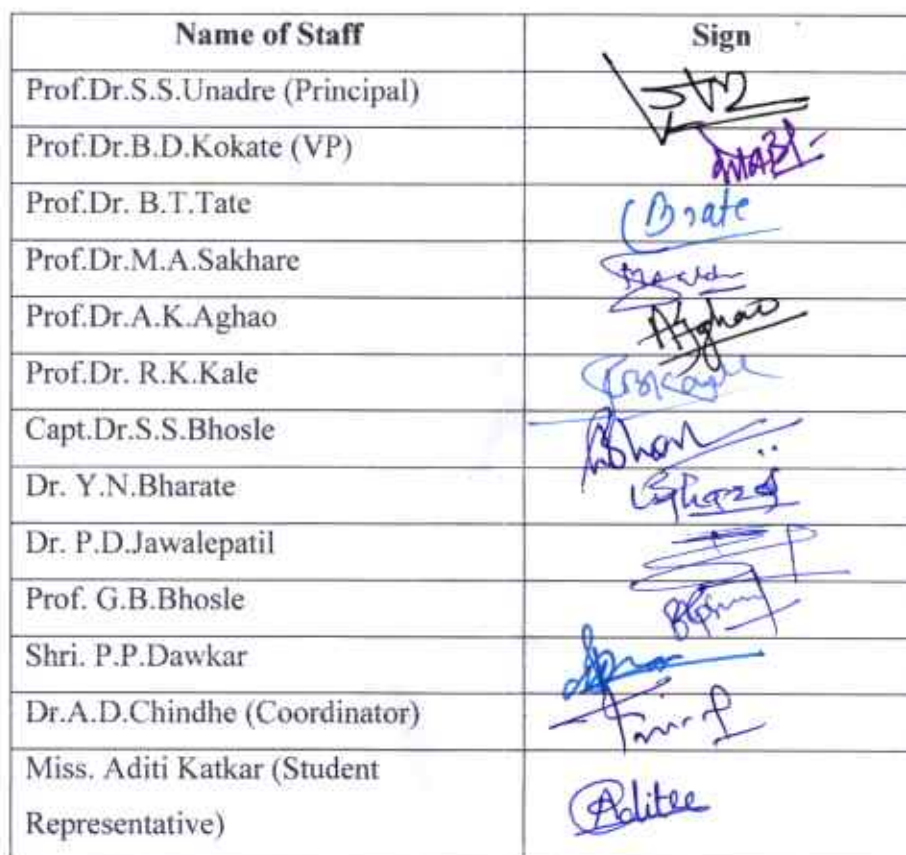 Name of Staff Sign
Prof.Dr.S.S.Unadre (Principal)
Prof.Dr.B.D.Kokate (VP)
Prof.Dr. B.T.Tate
Prof.Dr.M.A.Sakhare
Prof.Dr.A.K.Aghao Aghao
Prof.Dr. R.K.Kale
Capt.Dr.S.S.Bhosle
Dr. Y.N.Bharate
Dr. P.D.Jawalepatil
Prof. G.B.Bhosle
Shri. P.P.Dawkar
Dr.A.D.Chindhe (Coordinator)
Miss. Aditi Katkar (Student
Representative) Aditee